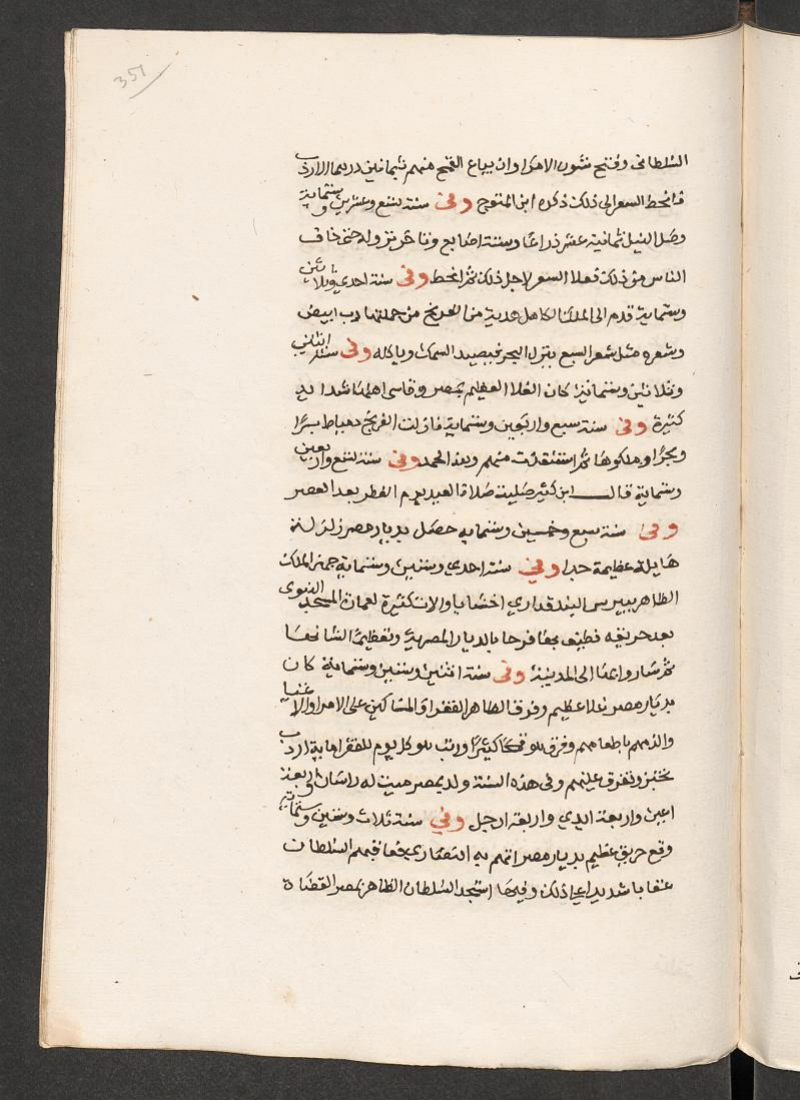 351
السلطانى وفتح شون الامرا وان يباع القمح منهم بثمانين درهما الاردب
فانحط السعر الى ذلك ذكره ابن المتوج وفى سنة تسع وعشرين وستماية
وصل النيل ثمانية عشر ذراعا وستة اصابع وتاخر نزوله حتى خاف
الناس من ذلك فغلا السعر لاجل ذلك ثم انحط وفى سنة احدى وثلاثين
وستماية قدم الى الملك الكامل هدية من الفرنج من جملتها دب ابيض
وشعره مثل شعر السبع ينزل البحر فيصيد السمك وياكله وفى سنة اثنين
وثلاثين وستماية كان الغلا العظيم بمصر وقاسى اهلها شدايد
كثيرة وفى سنة سبع واربعين وستماية نازلت الفرنج دمياط برا
وبحرا وملكوها ثم استنقذت منهم ولله الحمد وفى سنة تسع واربعين
وستماية قال ابن كثير صليت صلاة العيد يوم الفطر بعد العصر
وفى سنة سبع وخمسين وستمايه حصل بديار مصر زلزلة
هايلة عظيمة جدا وفى سنة احدى وستين وستماية جهز الملك
الظاهر بيبرس البندقدارى اخشابا والات كثيرة لعمارة المسجد النبوى
بعد حريقه فطيف بها فرحا بالديار المصرية وتعظيما لشانها
ثم ساروا بها الى المدينة وفى سنة اثنين وستين وستماية كان
بديار مصر غلا عظيم وفرق الظاهر الفقرا والمساكين على الامرا والاغنيا
والزمهم باطعامهم وفرق هو قمحا كثيرا ورتب هو كل يوم للفقرا ماية اردب
تخبز وتفرق عليهم وفى هذه السنة ولد بمصر ميت له راسان واربعة
اعين واربعة ايدى واربعة ارجل وفى سنة ثلاث وستين وستماية
وقع حريق عظيم بديار مصر اتهم به النصارى فعاقبهم السلطان
عقابا شديدا على ذلك وفيها استجد السلطان الظاهر بمصر القضاة